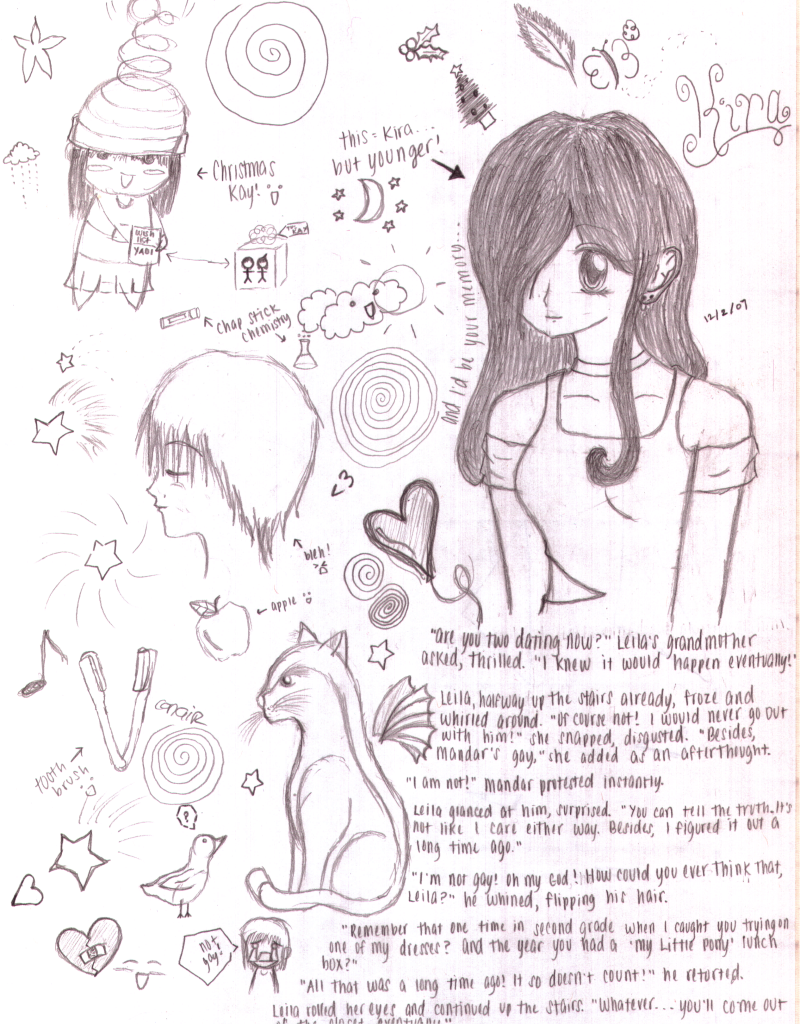 Kira
this = Kira...
but younger!
← Christmas
Kay! :)
wish
list
YAOI
and I'd be your memory...
12/2/07
chap stick
chemistry
<3
bleh!
← apple :)
"are you two dating now?" Leila's grandmother
asked, thrilled. "I knew it would happen eventually!"
Leila, halfway up the stairs already, froze and
whirled around. "Of course not! I would never go out
with him!" she snapped, disgusted. "Besides,
mandar's gay," she added as an afterthought.
"I am not!" mandar protested instantly.
Leila glanced at him, surprised. "You can tell the truth. It's
not like I care either way. Besides, I figured it out a
long time ago."
"I'm not gay! oh my God! How could you ever think that,
Leila?" he whined, flipping his hair.
"Remember that one time in second grade when I caught you trying on
one of my dresses? and the year you had a 'my Little Pony' lunch
box?"
"All that was a long time ago! It so doesn't count!" he retorted.
Leila rolled her eyes and continued up the stairs. "Whatever... you'll come out
of the closet eventually."
conair
tooth
brush
?
not
gay!